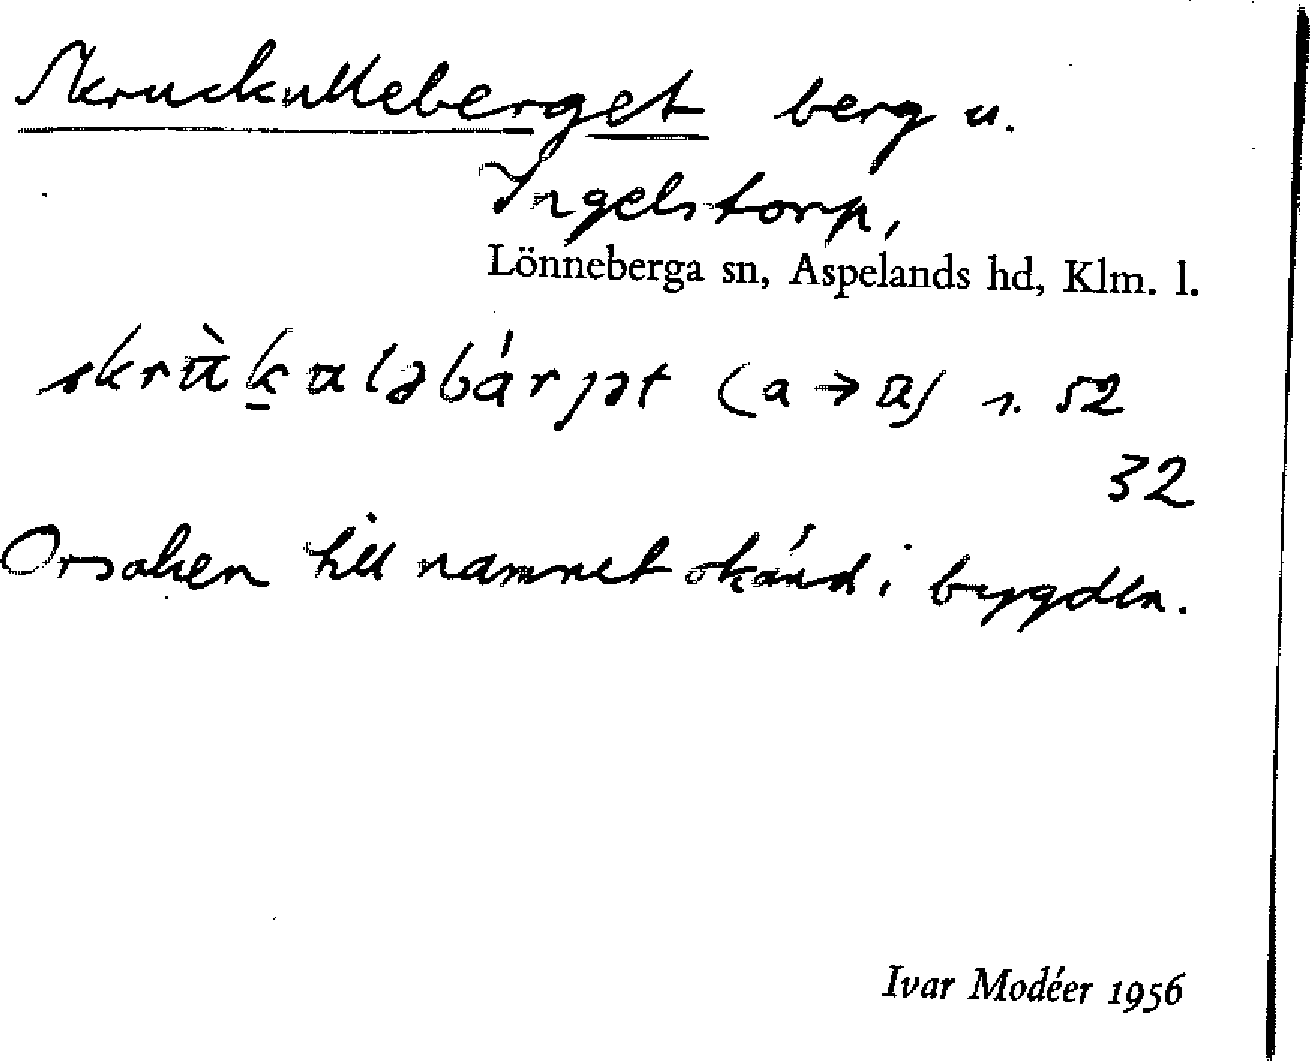 Skruckulleberget berg u.
Ingelstorp,
Lönneberga sn, Aspelands hd, Klm. l.
(a → ɑ) s. 52
32
Orsaken till namnet okänd i bygden.
Ivar Modéer 1956